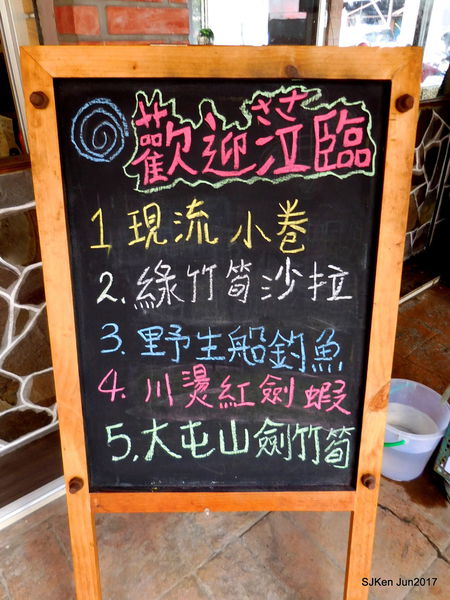 歡迎蒞臨
1 現流小卷
2. 綠竹筍沙拉
3. 野生船釣魚
4. 川燙紅劍蝦
5. 大屯山劍竹筍
SJKen Jun2017